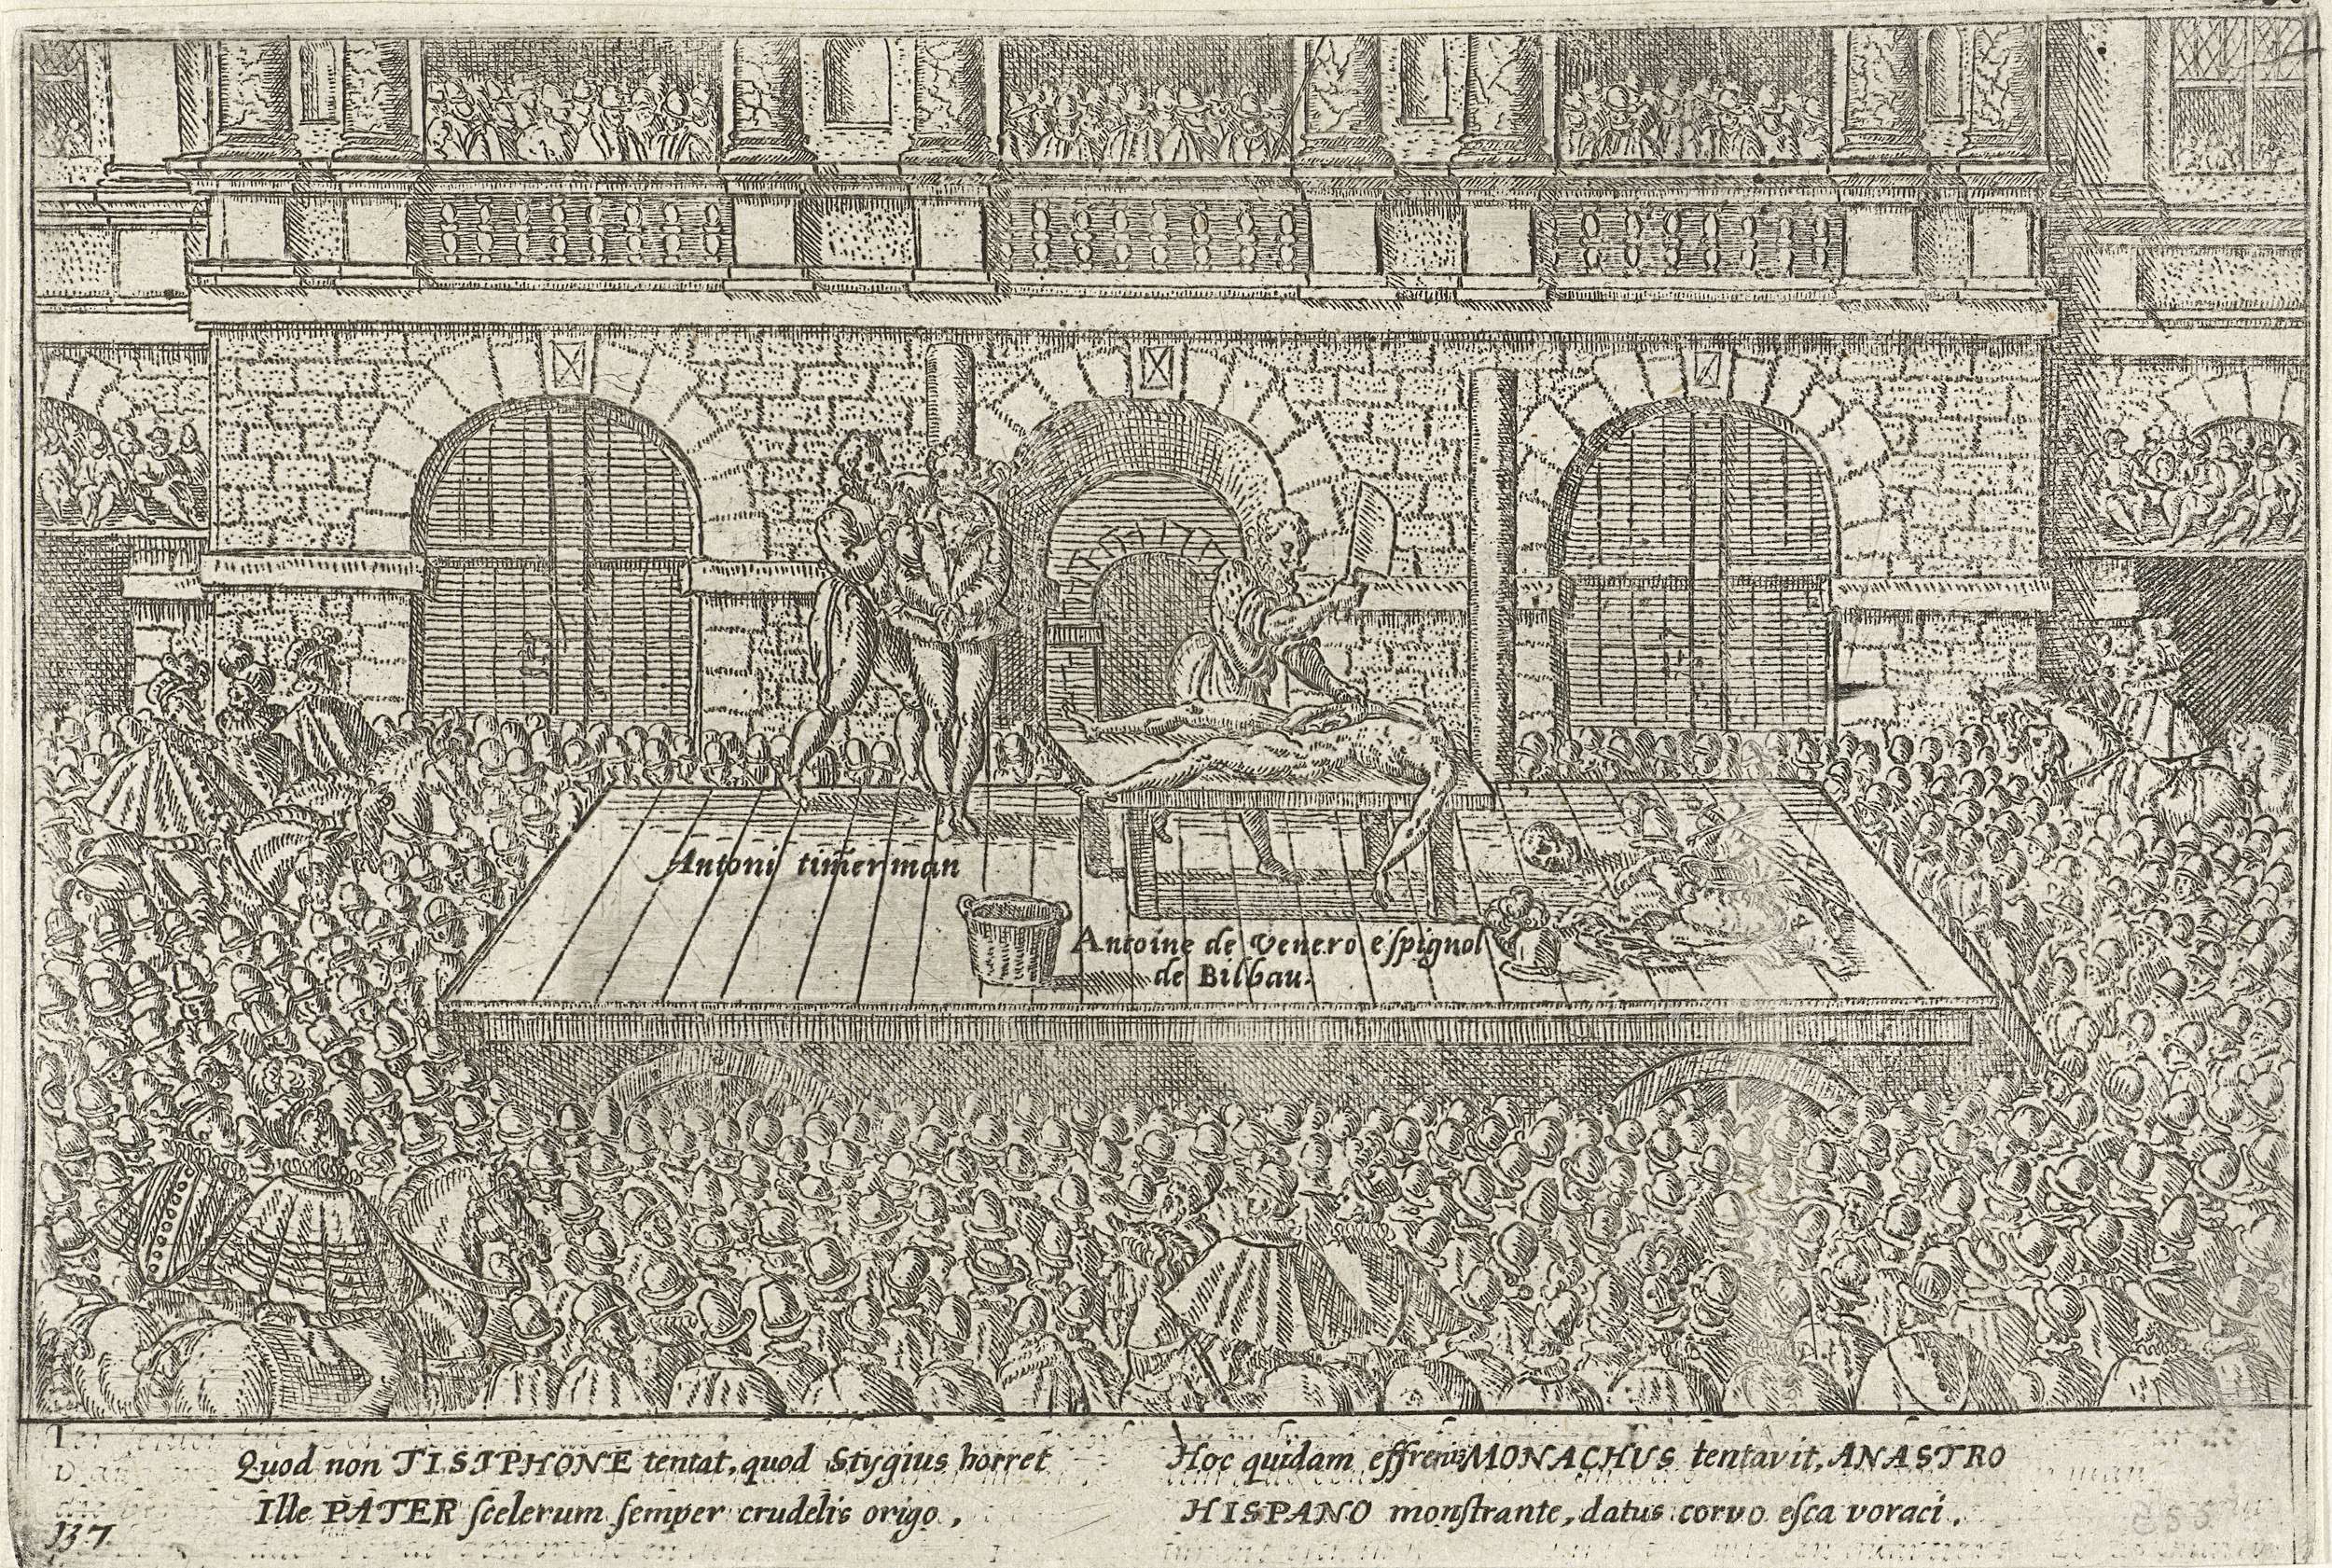 Antoni tim̃erman
Antoine de Venero eſpignol
de Bilbau.
Quod non TISIPHONE tentat, quod Stygius horret
Ille PATER ſcelerum ſemper crudelis origo,
Hoc quidam effrenis MONACHUS tentavit, ANASTRO
HISPANO monſtrante, datus corvo eſca voraci.
137